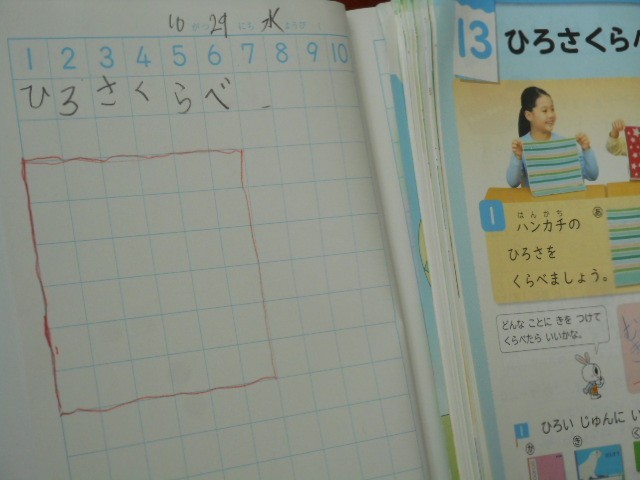 10 がつ 29 にち 水 ようび
1 2 3 4 5 6 7 8 9 10
ひろさくらべ
13 ひろさくらべ
1 ハンカチの あ
はんかち
ひろさを
くらべましょう。
どんな ことに きを つけて
くらべたら いいかな。
1 ひろい じゅんに い
か き く